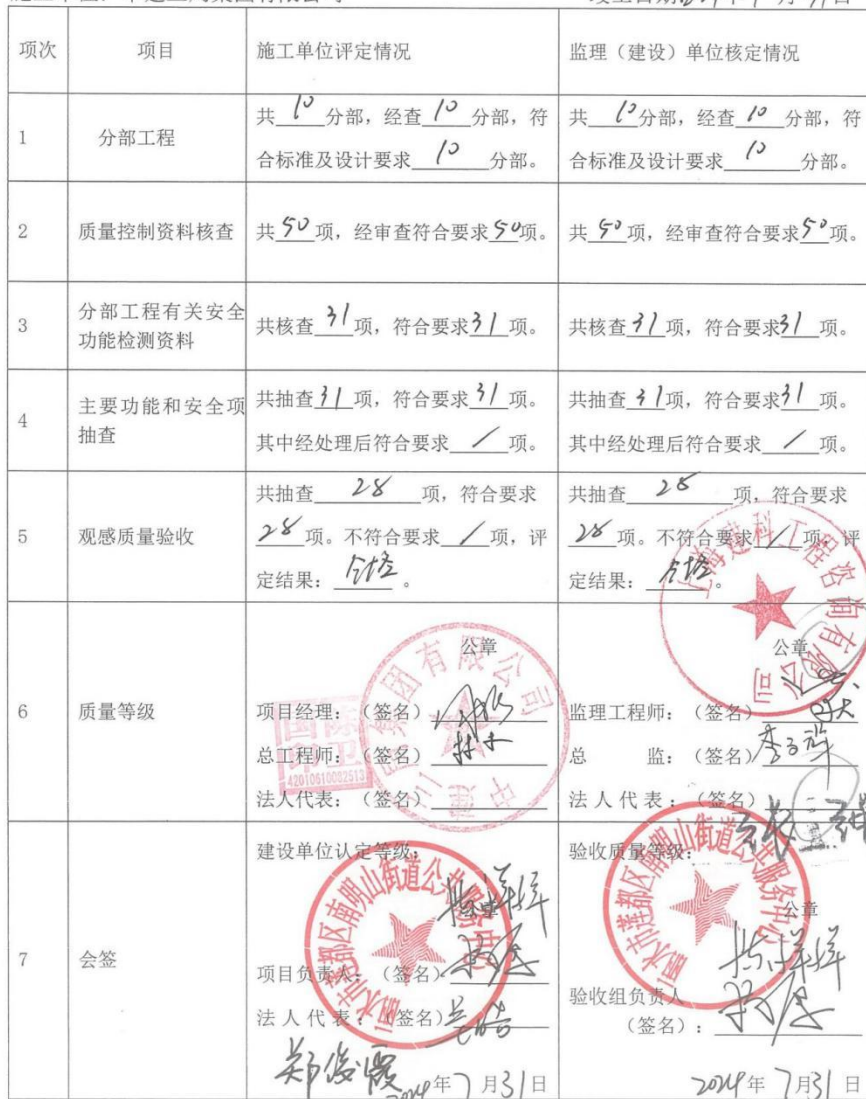 项次 项目 施工单位评定情况 监理（建设）单位核定情况
1 分部工程
共 10 分部，经查 10 分部，符
合标准及设计要求 10 分部。
共 10 分部，经查 10 分部，符
合标准及设计要求 10 分部。
2 质量控制资料核查 共 50 项，经审查符合要求 50 项。 共 50 项，经审查符合要求 50 项。
3 分部工程有关安全
功能检测资料
共核查 31 项，符合要求 31 项。 共核查 31 项，符合要求 31 项。
4 主要功能和安全项
抽查
共抽查 31 项，符合要求 31 项。
其中经处理后符合要求 / 项。
共抽查 31 项，符合要求 31 项。
其中经处理后符合要求 / 项。
5 观感质量验收
共抽查 28 项，符合要求
28 项。不符合要求 / 项，评
定结果：合格。
共抽查 28 项，符合要求
28 项。不符合要求 / 项，评
定结果：合格。
上海建科工程咨询有限公司
6 质量等级
公章
项目经理：（签名）
总工程师：（签名）
法人代表：（签名）
42010610082513
公章
监理工程师：（签名）
总 监：（签名）
法人代表：（签名）
7 会签
建设单位认定等级：
公章
项目负责人：（签名）
法人代表：（签名）
郑俊霞
2024年7月31日
丽水市莲都区南明山街道公共服务中心
验收质量等级：
公章
验收组负责人
（签名）：
2024年7月31日
丽水市莲都区南明山街道公共服务中心